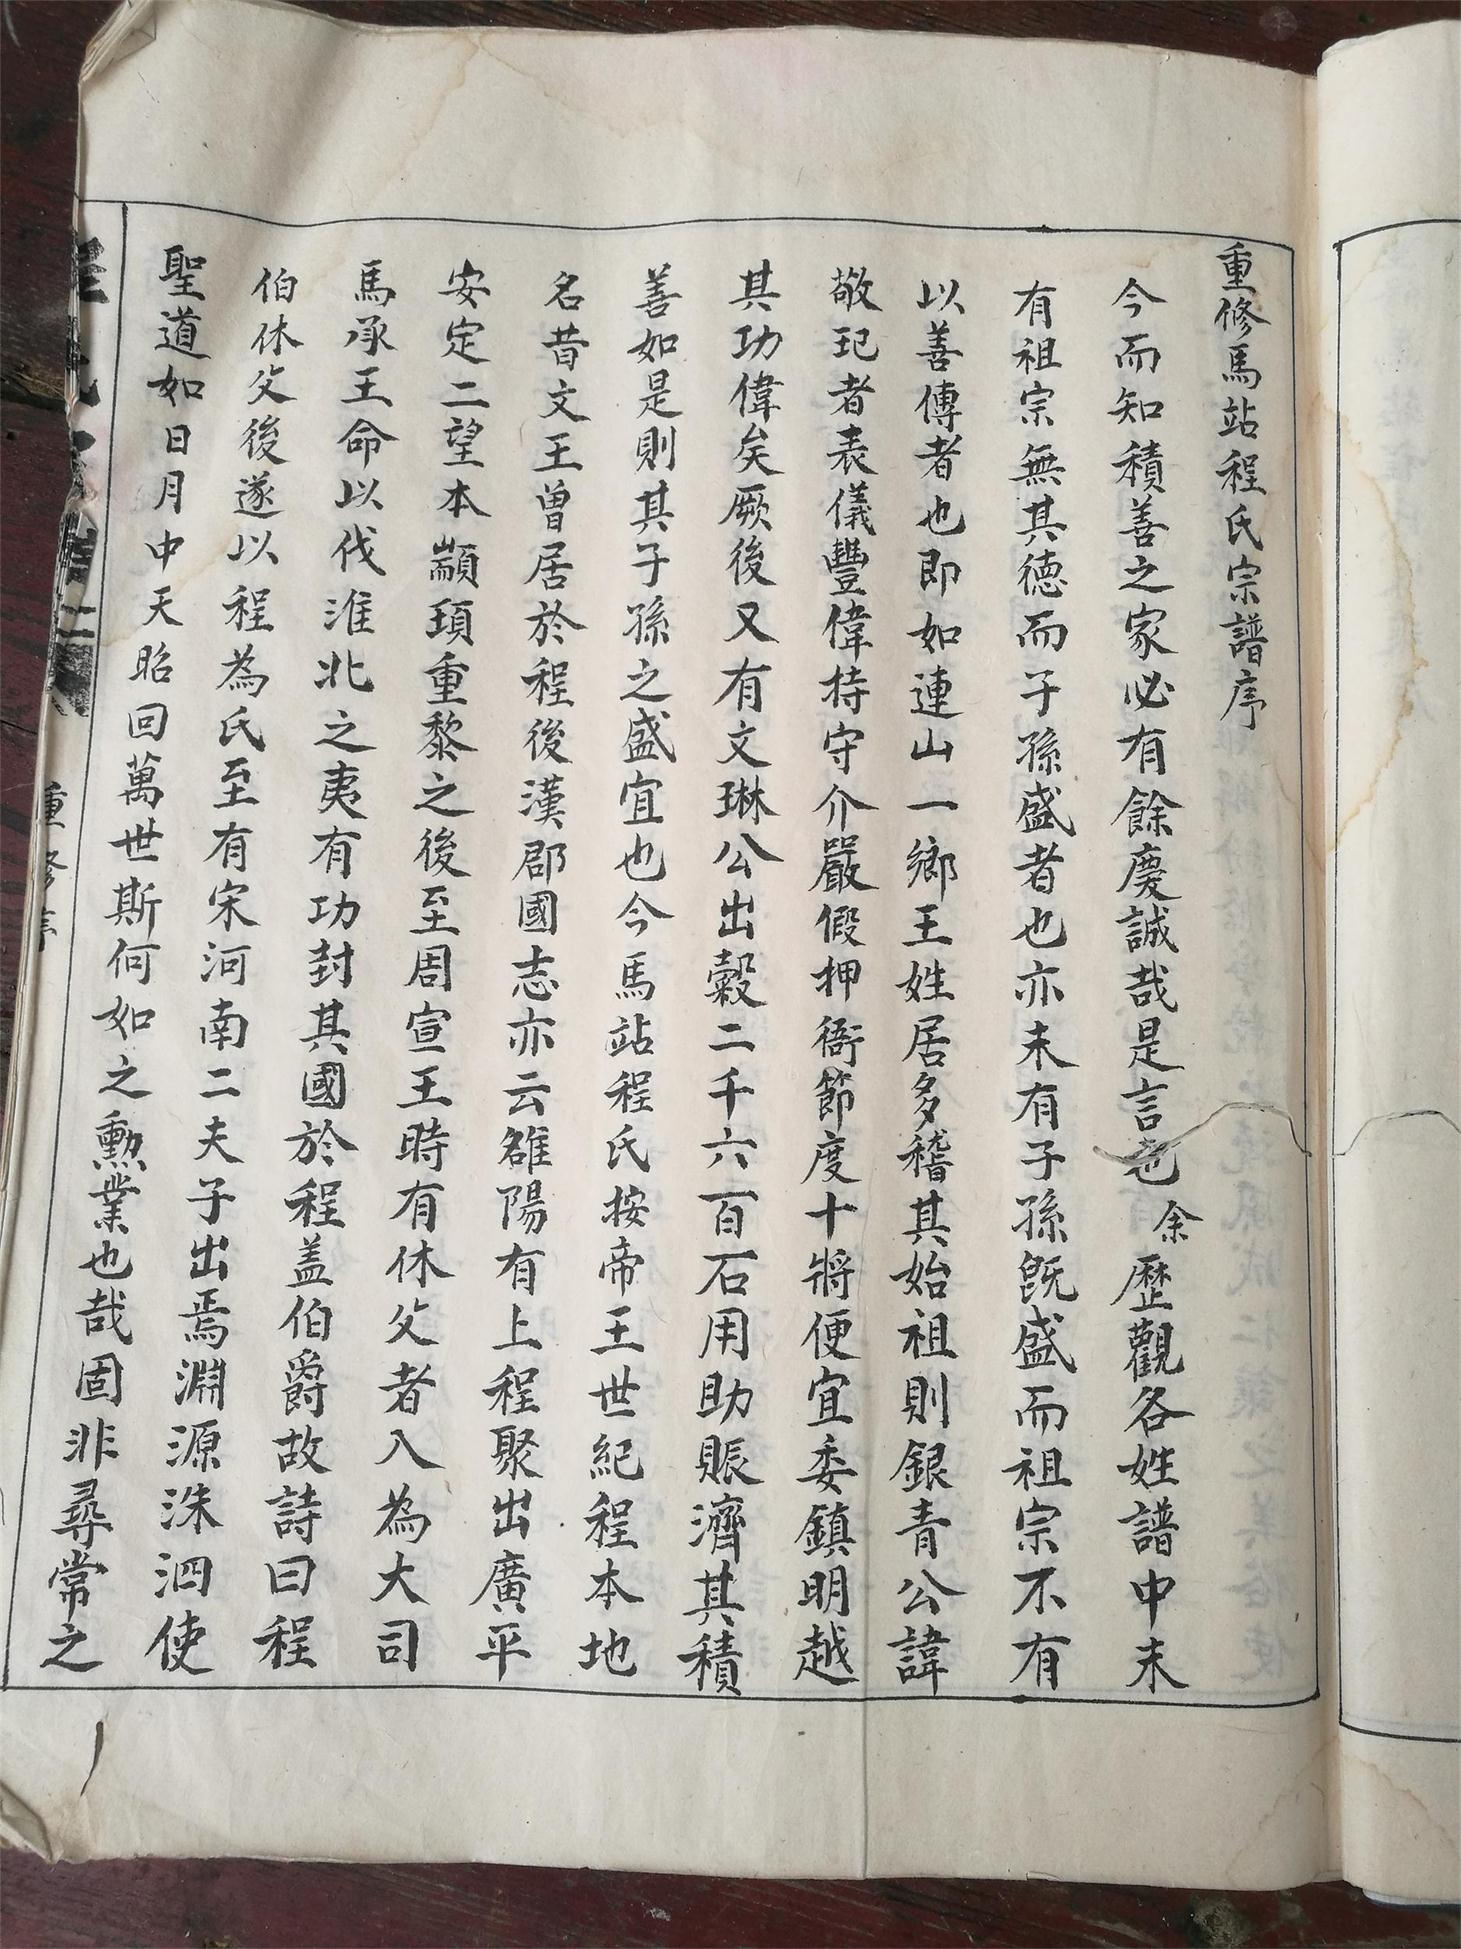 重修馬站程氏宗譜序
今而知積善之家必有餘慶誠哉是言也余歷觀各姓譜中未
有祖宗無其德而子孫盛者也亦未有子孫既盛而祖宗不有
以善傳者也即如連山一鄉王姓居多稽其始祖則銀青公諱
敬玘者表儀豐偉持守介嚴假押衙節度十將便宜委鎮明越
其功偉矣厥後又有文琳公出穀二千六百石用助賑濟其積
善如是則其子孫之盛宜也今馬站程氏按帝王世紀程本地
名昔文王曾居於程後漢郡國志亦云雒陽有上程聚出廣平
安定二望本顓頊重黎之後至周宣王時有休父者入為大司
馬承王命以伐淮北之夷有功封其國於程蓋伯爵故詩曰程
伯休父後遂以程為氏至有宋河南二夫子出焉淵源洙泗使
聖道如日月中天昭回萬世斯何如之勲業也哉固非尋常之
重修序